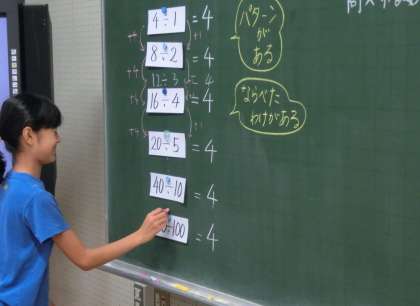 4÷1 = 4
8÷2 = 4
12÷3 = 4
16÷4 = 4
20÷5 = 4
40÷10 = 4
÷100 = 4
+4
+4
+4
+4
+1
+1
パターン
が
ある
ならべた
わけがある